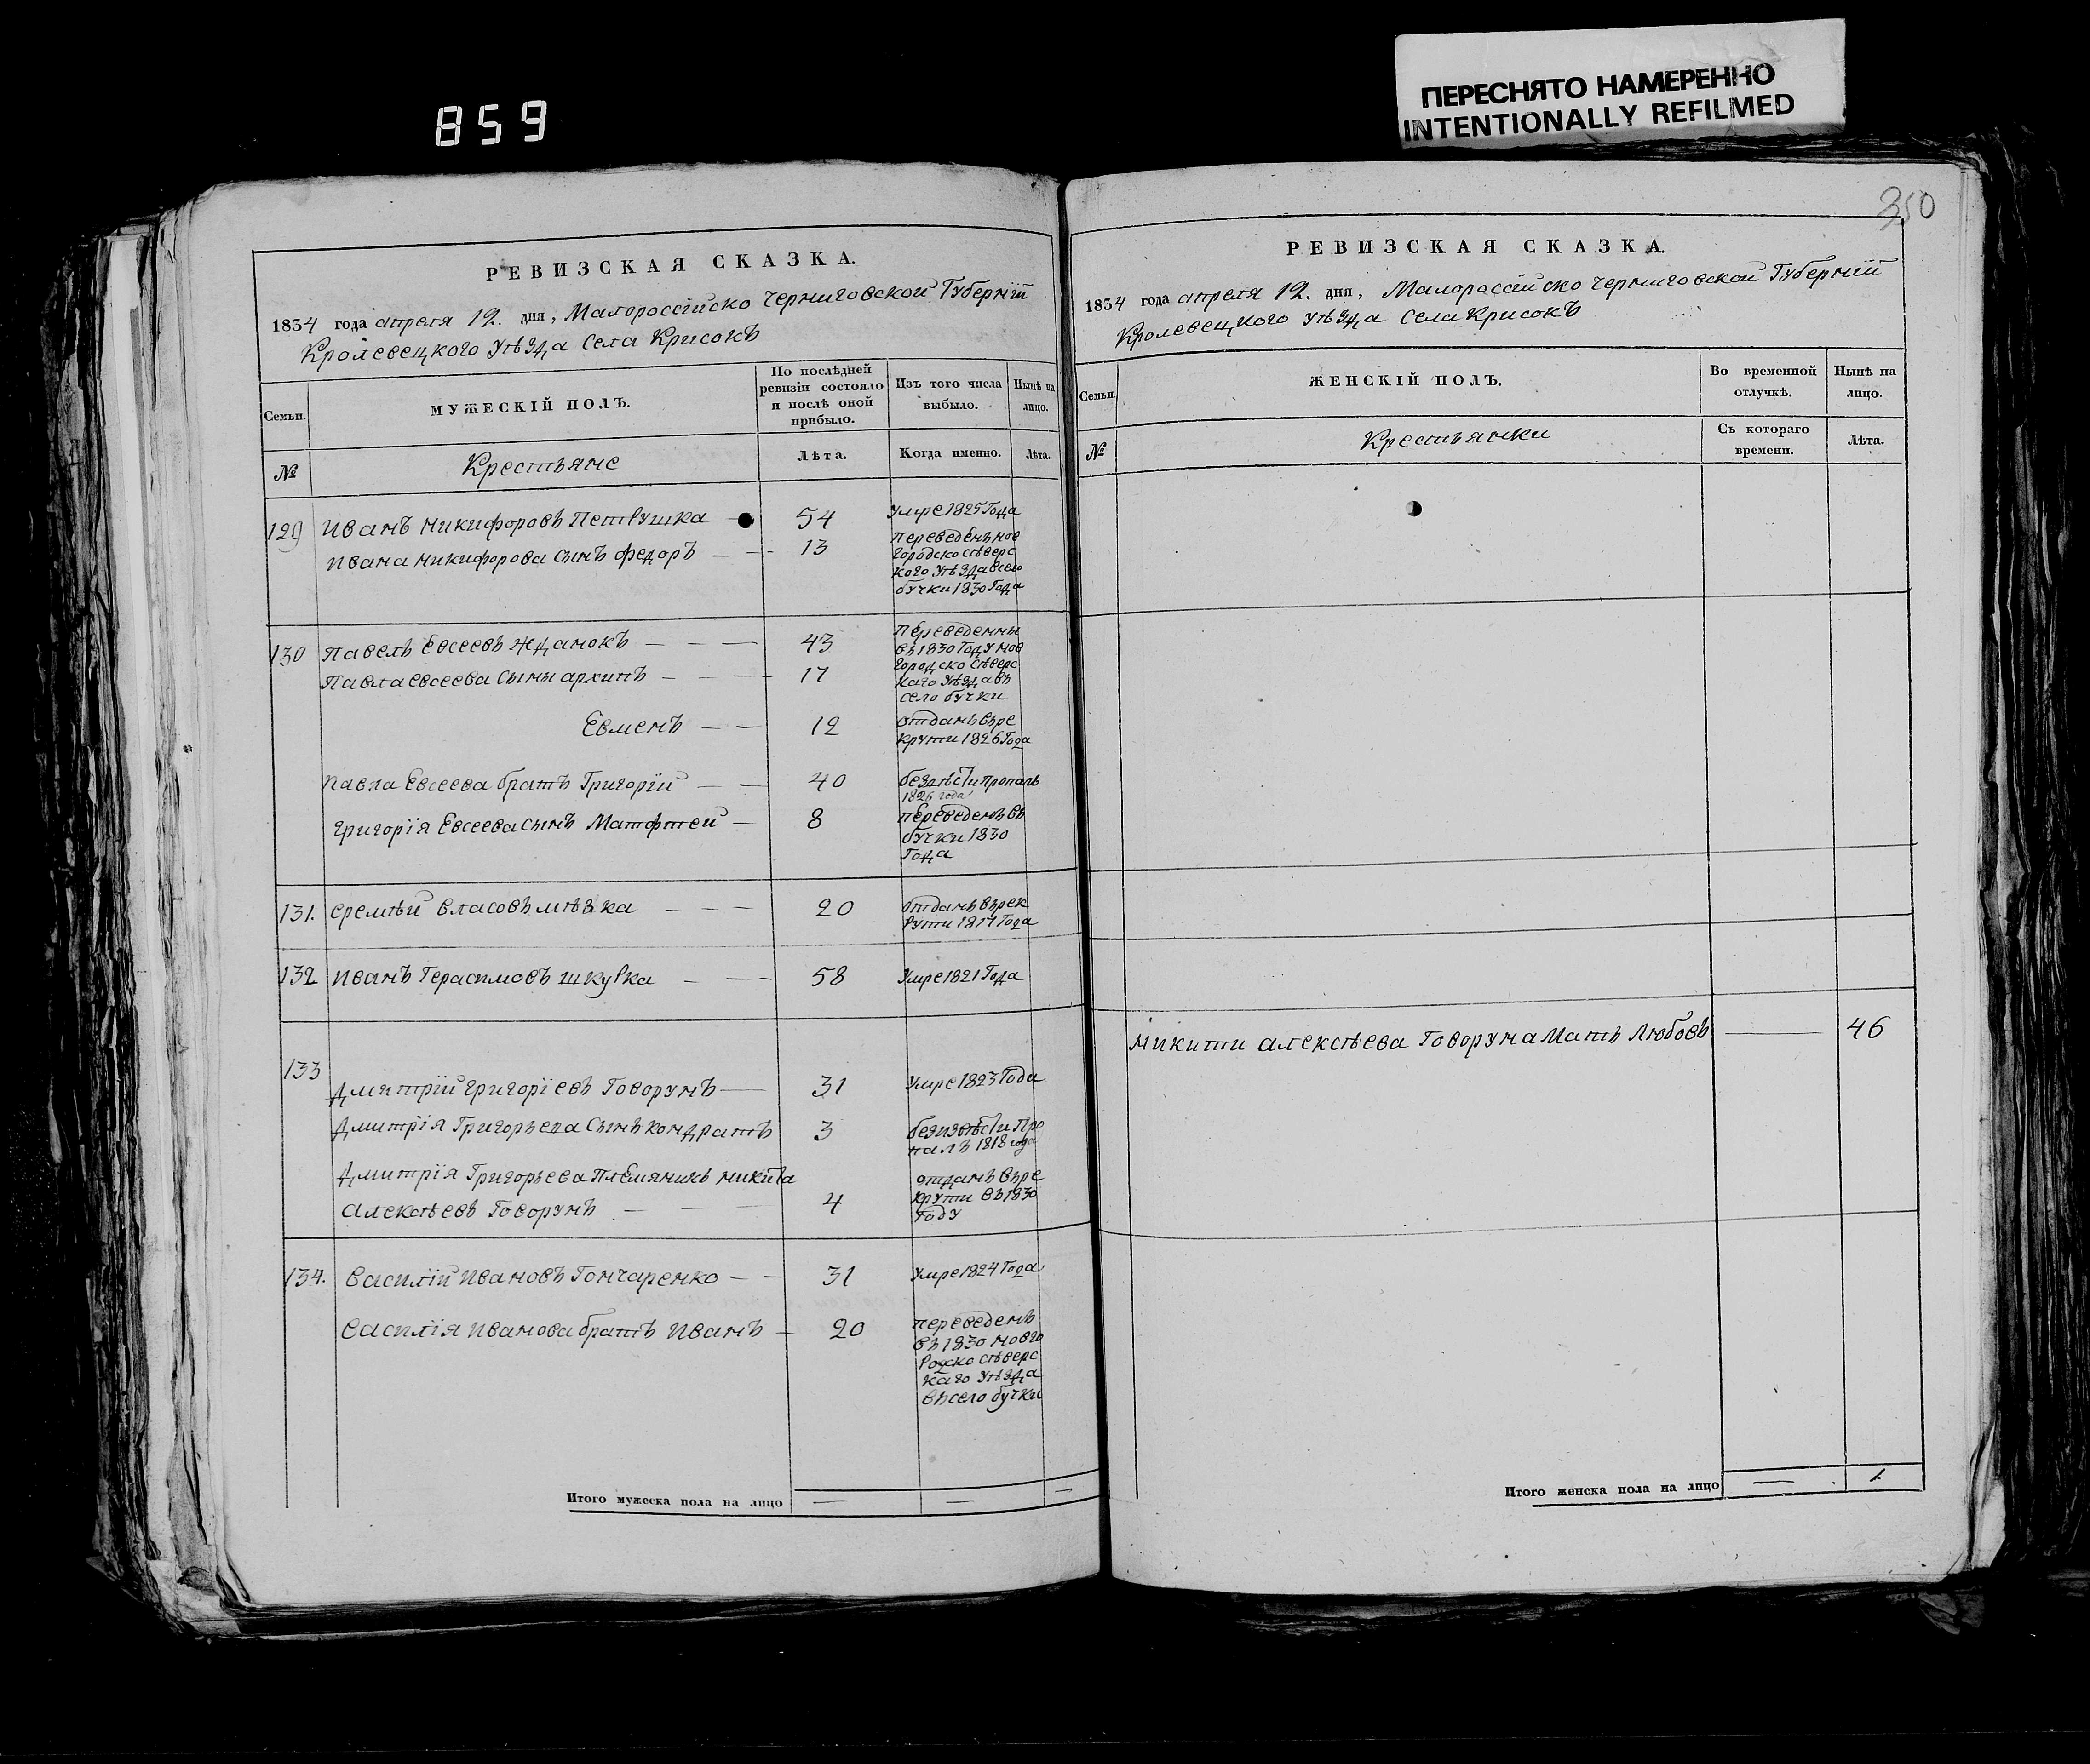 859
ПЕРЕСНЯТО НАМЕРЕННО
INTENTIONALLY REFILMED
РЕВИЗСКАЯ СКАЗКА.
1834 года апреля 12. дня, Малороссійско Черниговской Губерніи
Кролевецкого уѣзда Села Крисокъ
Семьи.
МУЖЕСКІЙ ПОЛЪ.
По послѣдней
ревизіи состояло
и послѣ оной
прибыло.
Изъ того числа
выбыло.
Нынѣ на
лицо.
№
Крестьяне
Лѣта.
Когда именно.
Лѣта.
129 Иванъ Никифоровъ Петрушка — 54 Умре 1825 Года
Ивана Никифорова сынъ Федоръ — — 13 Переведенъ нов
городско сѣверс
кого уѣзда всело
бучки 1830 Года
130 Павелъ Евсеевъ Жданокъ — — — 43 Переведенны
въ 1830 Году нов
Павла Евсеева Сыны архипъ — — — 17 городско сѣверс
каго уѣзда въ
село бучки
Евменъ — — 12 отданъ врре
крути 1826 Года
Павла Евсеева братъ Григорій — — 40 безвѣсти пропалъ
1826 года
Григорія Евсеева сынъ Матфтей — 8 переведенъ въ
бучки 1830
Года
131. Еремѣй Власовъ — — — 20 отданъ врек
рути 1817 Года
132 Иванъ Герасимовъ шкурка — — — 58 Умре 1821 Года
133
Дмитрій григоріевъ Говорунъ — 31 Умре 1823 Года
Дмитрія Григорьева Сынъ кондратъ 3 безизвѣсти про
палъ 1818 года
Дмитрія Григорьева Племяникъ никита отданъ врре
Алексѣевъ Говорунъ — — — 4 крути въ 1830
Году
134. Василій Ивановъ Гончаренко — — 31 Умре 1824 Года
Василія Иванова братъ Иванъ — 20 переведенъ
въ 1830 новго
роцко сѣверс
каго уѣзда
въ село бучки
Итого мужеска пола на лицо — — —
350
РЕВИЗСКАЯ СКАЗКА.
1834 года апреля 12. дня, Малороссійско Черниговской Губерніи
Кролевецкого уѣзда Села Крисокъ
Семьи.
ЖЕНСКІЙ ПОЛЪ.
Во временной
отлучкѣ.
Нынѣ на
лицо.
№
Крестьянки
Съ котораго
времени.
Лѣта.
Никити Алексѣева Говоруна Мать Любовь — 46
Итого женска пола на лицо — 1.